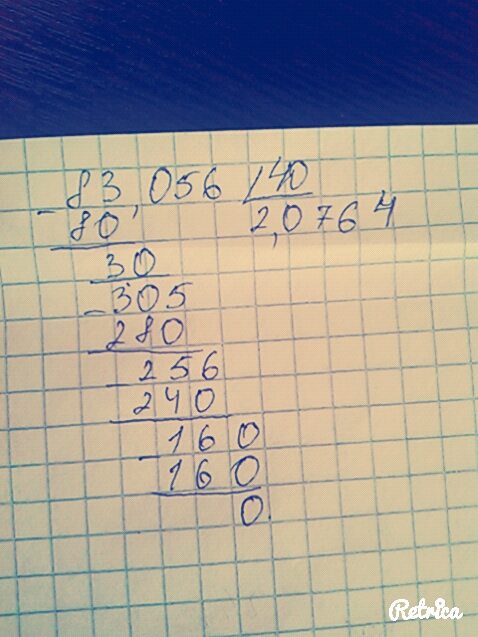 - 83,056 | 40
80 2,0764
30
- 305
280
- 256
240
- 160
160
0.
Retrica